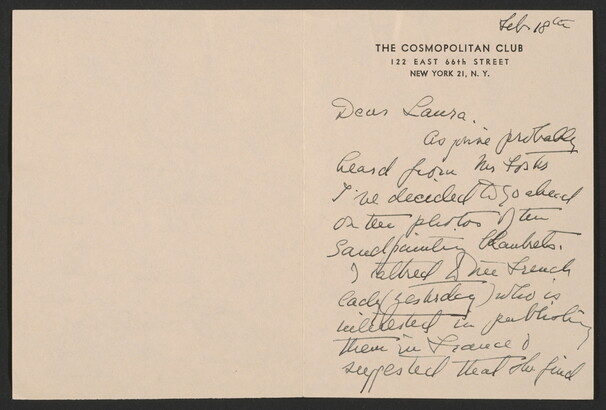 Feb 18th
THE COSMOPOLITAN CLUB
122 EAST 66th STREET
NEW YORK 21, N. Y.
Dear Laura.
As you've probably
heard from Mr
I've decided to go ahead
on the photos of the
Sandpainting blankets.
I talked to the French
lady (yesterday) who is
interested in publishing
them in France &
suggested that she find